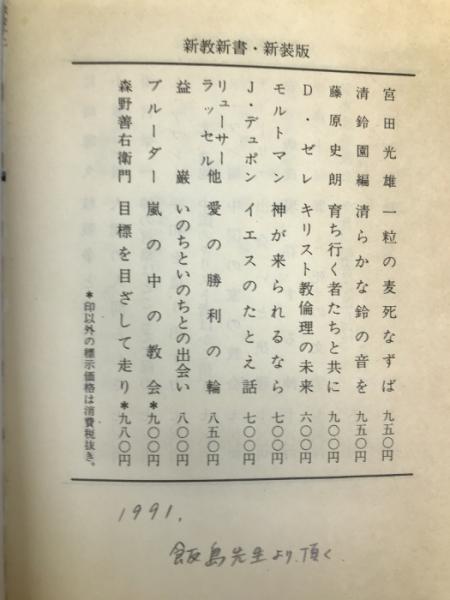 新教新書・新装版
宮田光雄 一粒の麦死なずば 九五〇円
清鈴園編 清らかな鈴の音を 九五〇円
藤原史朗 育ち行く者たちと共に 九〇〇円
D・ゼレ キリスト教倫理の未来 六〇〇円
モルトマン 神が来られるなら 七〇〇円
J・デュポン イエスのたとえ話 七〇〇円
リューサー
ラッセル他 愛の勝利の輪 八五〇円
益 巌 いのちといのちとの出会い 八〇〇円
ブルーダー 嵐の中の教会 *九〇〇円
森野善右衛門 目標を目ざして走り *九八〇円
*印以外の標示価格は消費税抜き。
1991.
飯島先生より頂く